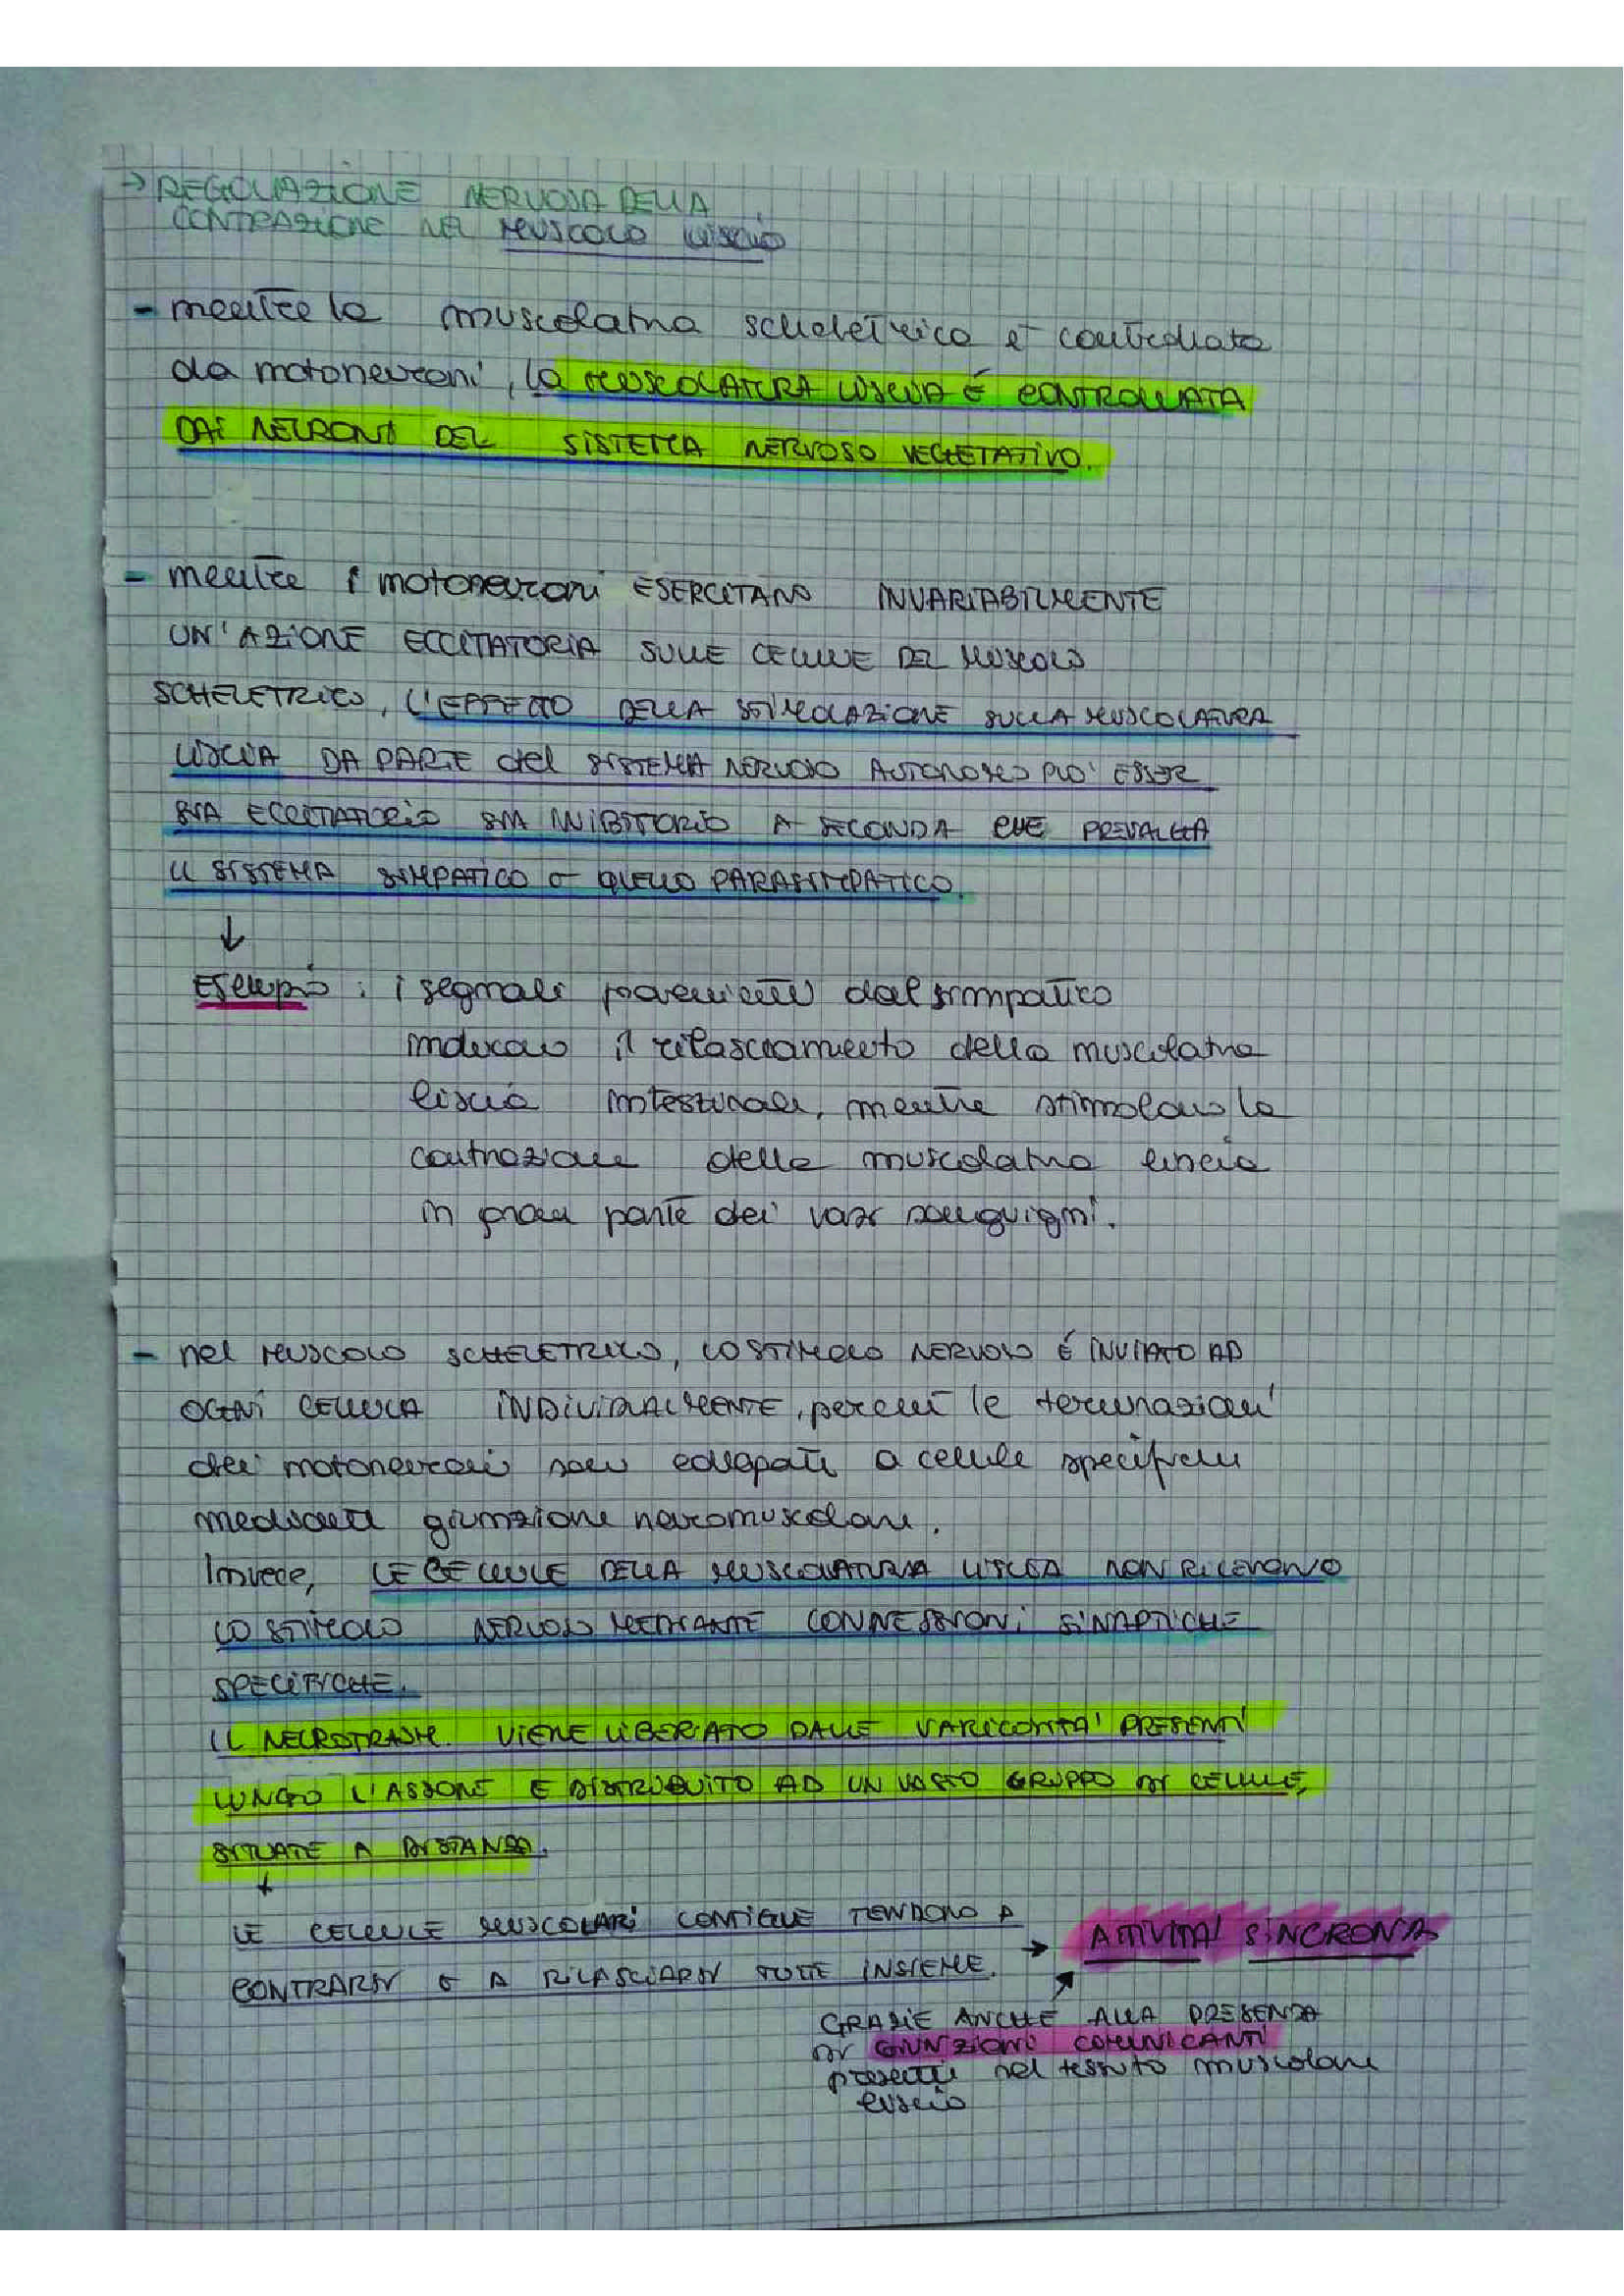 → REGOLAZIONE NERVOSA DELLA
CONTRAZIONE NEL MUSCOLO LISCIO
- mentre la muscolatura scheletrica è controllata
da motoneuroni, la MUSCOLATURA LISCIA É CONTROLLATA
DAI NEURONI DEL SISTEMA NERVOSO VEGETATIVO.
- mentre i motoneuroni ESERCITANO INVARIABILMENTE
UN'AZIONE ECCITATORIA SULLE CELLULE DEL MUSCOLO
SCHELETRICO, L'EFFETTO DELLA STIMOLAZIONE SULLA MUSCOLATURA
LISCIA DA PARTE del SISTEMA NERVOSO AUTONOMO PUO' ESSER
SIA ECCITATORIO SIA INIBITORIO A SECONDA CHE PREVALGA
IL SISTEMA SIMPATICO O QUELLO PARASIMPATICO.
↓
Esempio : i segnali provenienti dal simpatico
inducono il rilasciamento della muscolatura
liscia intestinale, mentre stimolano la
contrazione della muscolatura liscia
in gran parte dei vasi sanguigni.
- nel MUSCOLO SCHELETRICO, LO STIMOLO NERVOSO É INVIATO AD
OGNI CELLULA INDIVIDUALMENTE, perché le terminazioni
dei motoneuroni sono collegati a cellule specifiche
mediante giunzione neuromuscolare.
Invece, LE CELLULE DELLA MUSCOLATURA LISCIA NON RICEVONO
LO STIMOLO NERVOSO MEDIANTE CONNESSIONI SINAPTICHE
SPECIFICHE.
IL NEUROTRASM. VIENE LIBERATO DALLE VARICOSITA' PRESENTI
LUNGO L'ASSONE E DISTRIBUITO AD UN VASTO GRUPPO DI CELLULE,
SITUATE A DISTANZA.
↓
LE CELLULE MUSCOLARI CONTIGUE TENDONO A
CONTRARSI O A RILASCIARSI TUTTE INSIEME. → ATTIVITA' SINCRONA
GRAZIE ANCHE ALLA PRESENZA
DI GIUNZIONI COMUNICANTI
presenti nel tessuto muscolare
liscio